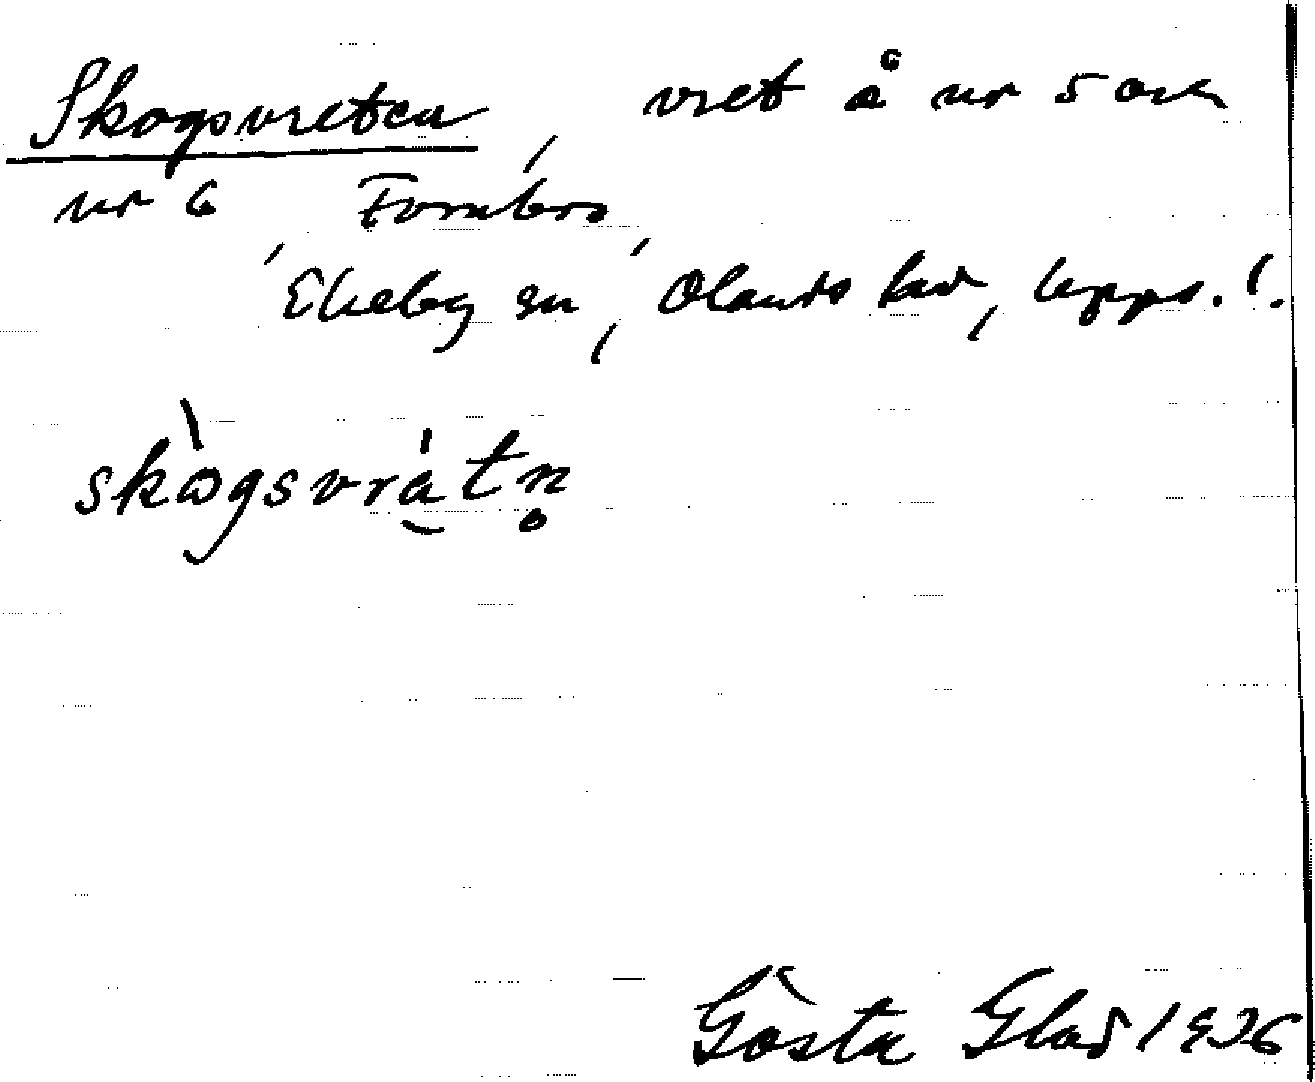 Skogsvreten, vret å nr 5 och
nr 6 Fornbro,
Ekeby sn, Olands hd, Upps. l.
skògsvrátn̥
Gösta Glad 1926